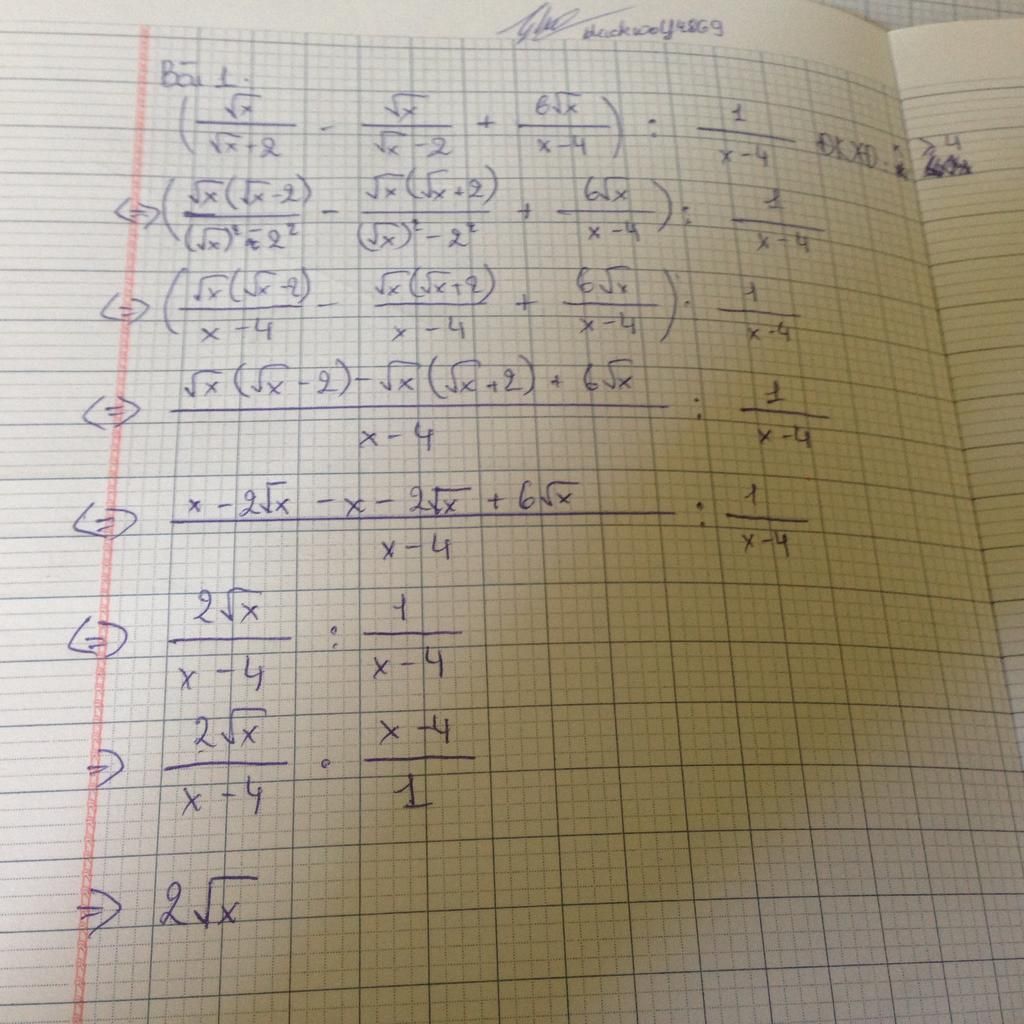 blackwolf4869
Bài 1.
(√x/(√x+2) - √x/(√x-2) + 6√x/(x-4)) : 1/(x-4) ĐKXĐ: ≥4
⇔ (√x(√x-2)/((√x)²-2²) - √x(√x+2)/((√x)²-2²) + 6√x/(x-4)) : 1/(x-4)
⇔ (√x(√x-2)/(x-4) - √x(√x+2)/(x-4) + 6√x/(x-4)) : 1/(x-4)
⇔ (√x(√x-2)-√x(√x+2)+6√x)/(x-4) : 1/(x-4)
⇔ (x-2√x-x-2√x+6√x)/(x-4) : 1/(x-4)
⇔ 2√x/(x-4) : 1/(x-4)
⇒ 2√x/(x-4) . (x-4)/1
⇒ 2√x